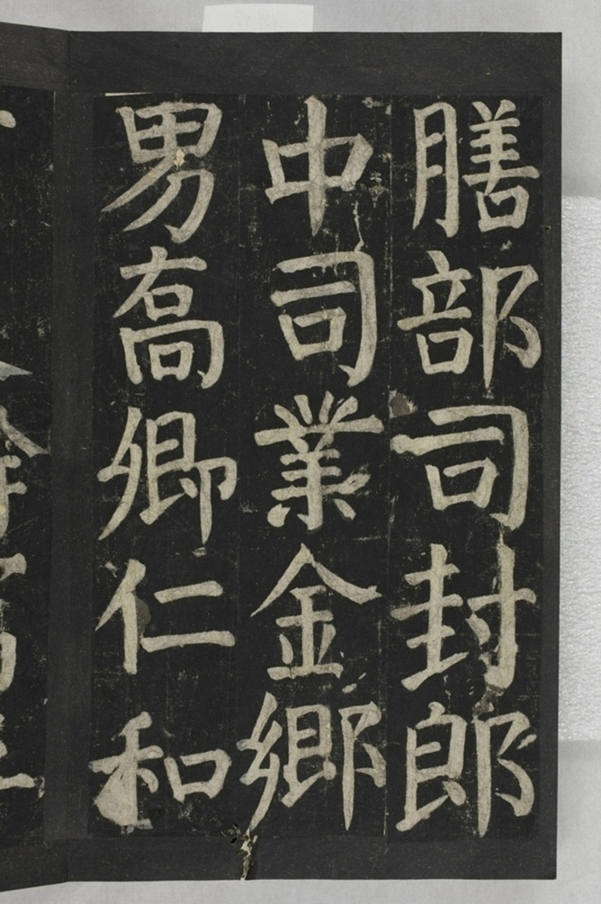 膳部司封郎
中司業金鄉
男髙卿仁和